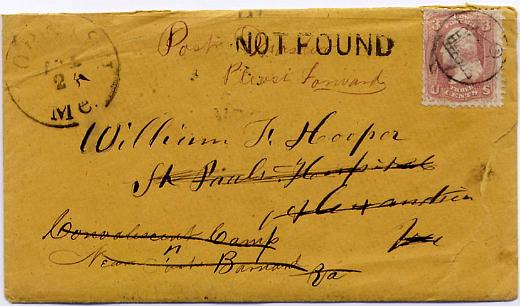 NOT FOUND
Please Forward
Me.
U S
THREE
CENTS
William F. Hooper
St Pauls Hospital
Alexandria
Convalescent Camp
Near Barnard Va